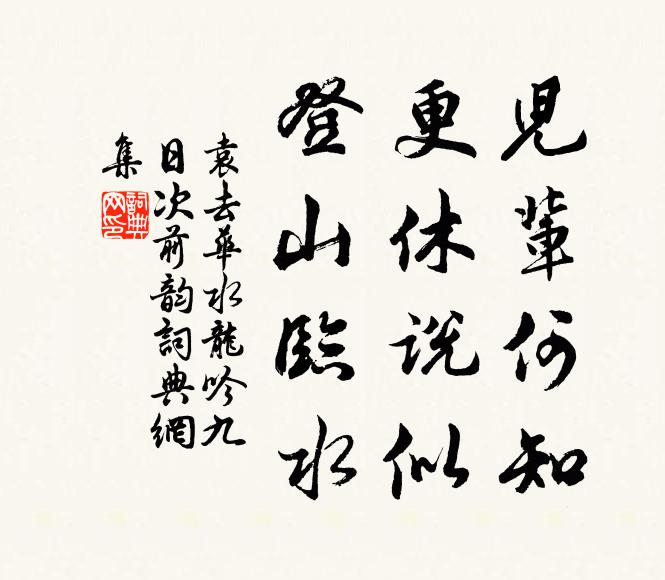 兒輩何知
更休說似
登山臨水
袁去華水龍吟九
日次前韵詞典網
集
詞典網印